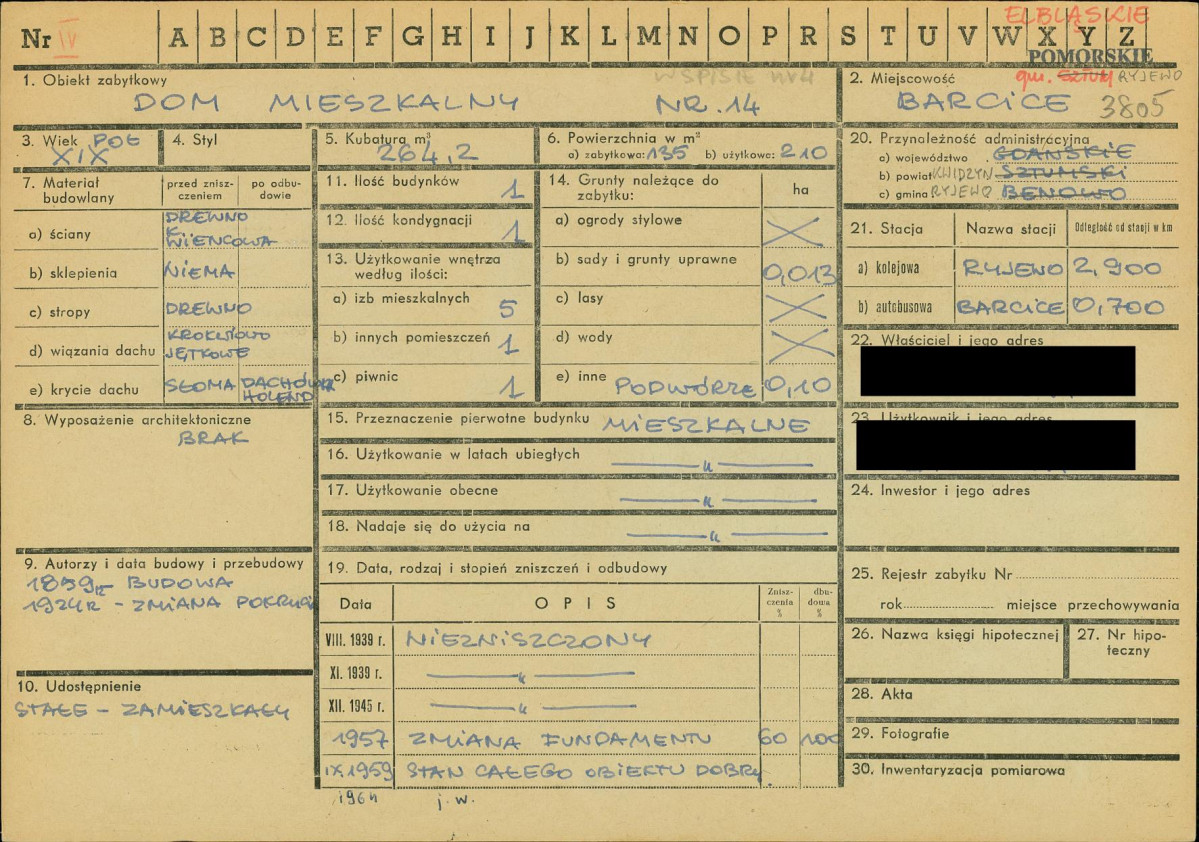 Nr IV A B C D E F G H I J K L M N O P R S T U V W X Y Z
ELBLĄSKIE
POMORSKIE
gm. SZTUM RYJEWO
1. Obiekt zabytkowy
W SPISIE nr 4
DOM MIESZKALNY NR. 14
2. Miejscowość
BARCICE 3805
3. Wiek POŁ
XIX
4. Styl
5. Kubatura m³
264,2
6. Powierzchnia w m²
a) zabytkowa: 135 b) użytkowa: 210
20. Przynależność administracyjna
a) województwo GDAŃSKIE
b) powiat KWIDZYN SZTUMSKI
c) gmina RYJEWO BENOWO
7. Materiał budowlany
przed zniszczeniem
po odbudowie
a) ściany DREWNO K. WIENCOWA
b) sklepienia NIEMA
c) stropy DREWNO
d) wiązania dachu KROKWIOWO JĘTKOWE
e) krycie dachu SŁOMA DACHÓWK HOLEND
11. Ilość budynków 1
12. Ilość kondygnacji 1
13. Użytkowanie wnętrza
według ilości:
a) izb mieszkalnych 5
b) innych pomieszczeń 1
c) piwnic 1
14. Grunty należące do
zabytku: ha
a) ogrody stylowe
b) sady i grunty uprawne 0,013
c) lasy
d) wody
e) inne PODWÓRZE 0,10
21. Stacja Nazwa stacji Odległość od stacji w km
a) kolejowa RYJEWO 2,900
b) autobusowa BARCICE 0,700
22. Właściciel i jego adres
23. Użytkownik i jego adres
8. Wyposażenie architektoniczne
BRAK
15. Przeznaczenie pierwotne budynku MIESZKALNE
16. Użytkowanie w latach ubiegłych —„—
17. Użytkowanie obecne —„—
18. Nadaje się do użycia na —„—
24. Inwestor i jego adres
9. Autorzy i data budowy i przebudowy
1859r - BUDOWA
1924r - ZMIANA POKRYCIA
10. Udostępnienie
STAŁE - ZAMIESZKAŁY
19. Data, rodzaj i stopień zniszczeń i odbudowy
Data OPIS Zniszczenia % dbudowa %
VIII. 1939 r. NIEZNISZCZONY
XI. 1939 r. —„—
XII. 1945 r. —„—
1957 ZMIANA FUNDAMENTU 60 100
IX.1959 STAN CAŁEGO OBIEKTU DOBRY.
1964 j.w.
25. Rejestr zabytku Nr
rok miejsce przechowywania
26. Nazwa księgi hipotecznej
27. Nr hipoteczny
28. Akta
29. Fotografie
30. Inwentaryzacja pomiarowa